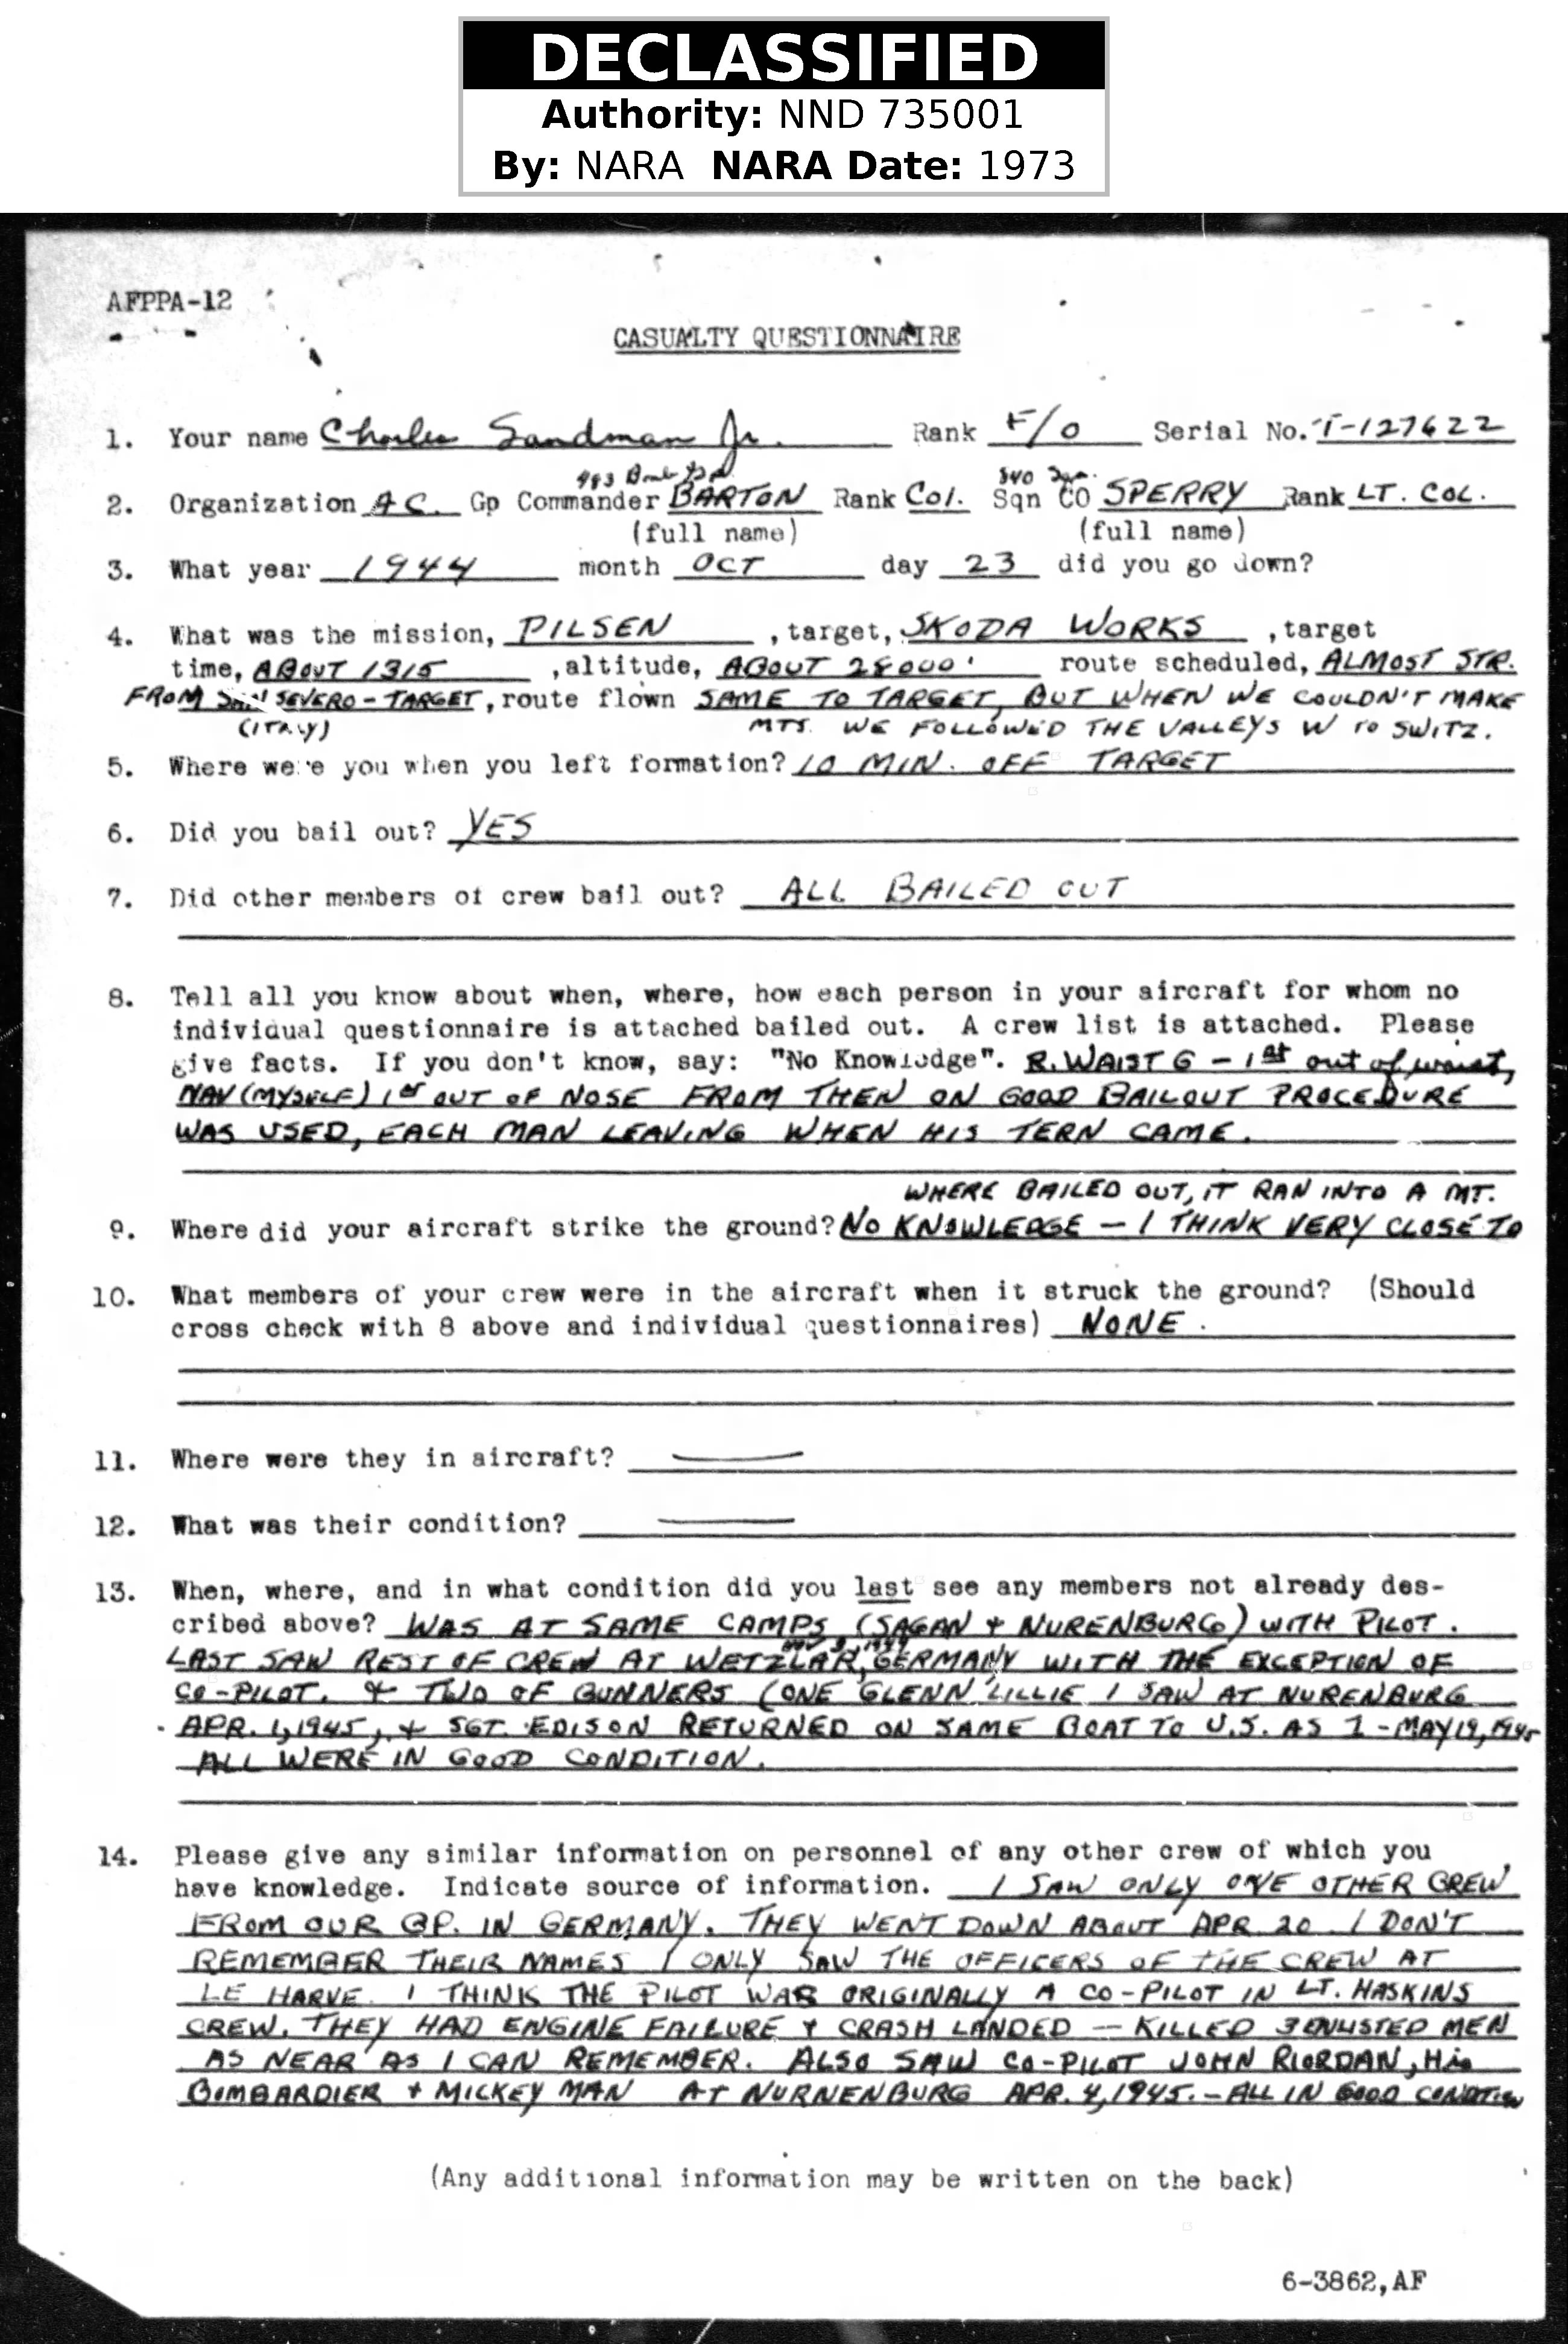 DECLASSIFIED
Authority: NND 735001
By: NARA NARA Date: 1973
AFPPA-12
CASUALTY QUESTIONNAIRE
1. Your name Charles Sandman Jr. Rank F/O Serial No. T-127622
483 Bomb Gp. 840 Sqn.
2. Organization A C. Gp Commander BARTON Rank Col. Sqn CO SPERRY Rank LT. COL.
(full name) (full name)
3. What year 1944 month OCT day 23 did you go down?
4. What was the mission, PILSEN , target, SKODA WORKS , target
time, ABOUT 1315 , altitude, ABOUT 28000' route scheduled, ALMOST STR.
FROM SAN SEVERO - TARGET, route flown SAME TO TARGET, BUT WHEN WE COULDN'T MAKE
(ITALY) MTS. WE FOLLOWED THE VALLEYS W TO SWITZ.
5. Where were you when you left formation? 10 MIN. OFF TARGET
6. Did you bail out? YES
7. Did other members of crew bail out? ALL BAILED OUT
8. Tell all you know about when, where, how each person in your aircraft for whom no
individual questionnaire is attached bailed out. A crew list is attached. Please
give facts. If you don't know, say: "No Knowledge". R. WAIST G - 1st out of waist,
NAV (MYSELF) 1st OUT OF NOSE FROM THEN ON GOOD BAILOUT PROCEDURE
WAS USED, EACH MAN LEAVING WHEN HIS TERN CAME.
WHERE BAILED OUT, IT RAN INTO A MT.
9. Where did your aircraft strike the ground? NO KNOWLEDGE - I THINK VERY CLOSE TO
10. What members of your crew were in the aircraft when it struck the ground? (Should
cross check with 8 above and individual questionnaires) NONE.
11. Where were they in aircraft? —
12. What was their condition? —
13. When, where, and in what condition did you last see any members not already des-
cribed above? WAS AT SAME CAMPS (SAGAN + NURENBURG) WITH PILOT.
LAST SAW REST OF CREW AT WETZLAR, GERMANY WITH THE EXCEPTION OF
CO-PILOT. & TWO OF GUNNERS (ONE GLENN LILLIE I SAW AT NURENBURG
APR. 1, 1945, + SGT. EDISON RETURNED ON SAME BOAT TO U.S. AS I - MAY 19, 1945
ALL WERE IN GOOD CONDITION.
14. Please give any similar information on personnel of any other crew of which you
have knowledge. Indicate source of information. I SAW ONLY ONE OTHER CREW
FROM OUR GP. IN GERMANY. THEY WENT DOWN ABOUT APR 20. I DON'T
REMEMBER THEIR NAMES I ONLY SAW THE OFFICERS OF THE CREW AT
LE HARVE. I THINK THE PILOT WAS ORIGINALLY A CO-PILOT IN LT. HASKINS
CREW. THEY HAD ENGINE FAILURE + CRASH LANDED - KILLED 3 ENLISTED MEN
AS NEAR AS I CAN REMEMBER. ALSO SAW CO-PILOT JOHN RIORDAN, His
BOMBARDIER + MICKEY MAN AT NURNENBURG APR. 4, 1945. - ALL IN GOOD CONDITION
(Any additional information may be written on the back)
6-3862, AF